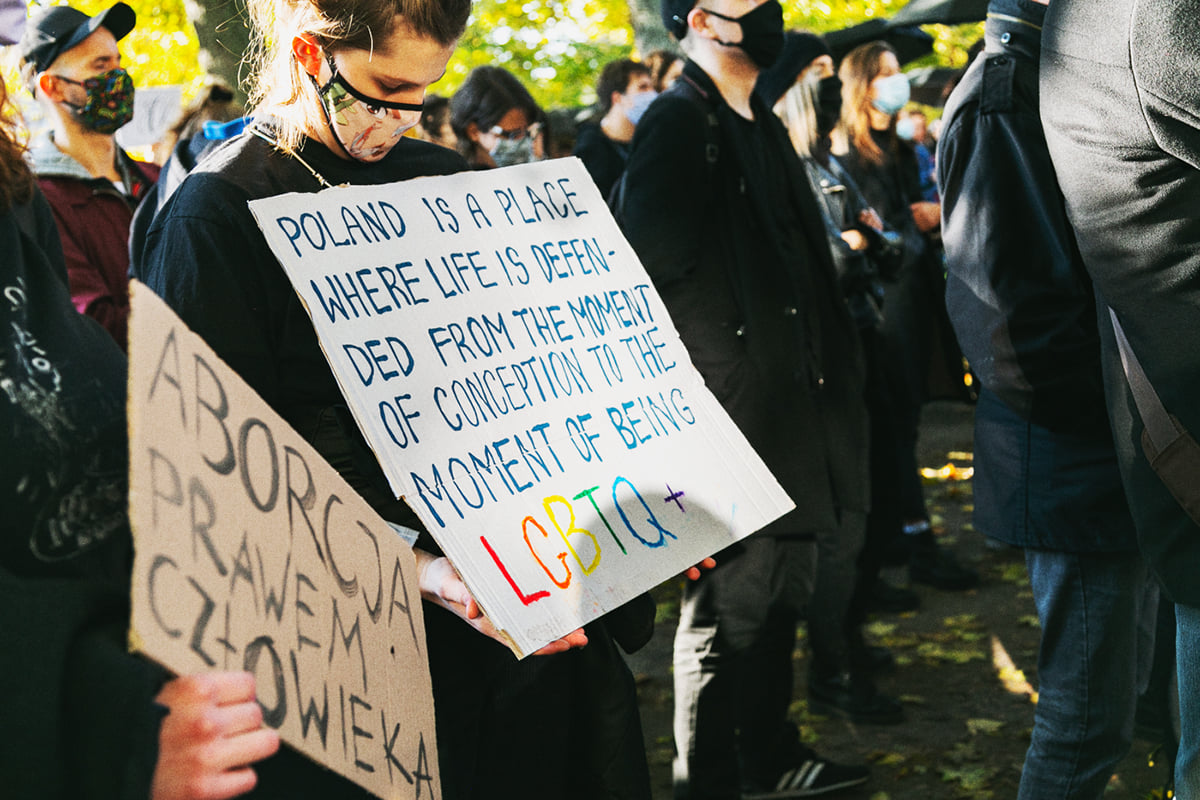 POLAND IS A PLACE
WHERE LIFE IS DEFEN-
DED FROM THE MOMENT
OF CONCEPTION TO THE
MOMENT OF BEING
LGBTQ+
ABORCJA
PRAWEM
CZŁOWIEKA